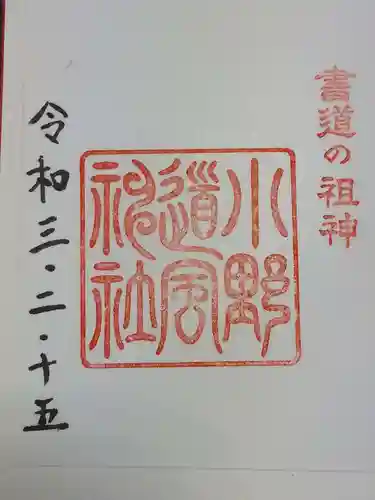 書道の祖神
小野
道風
神社
令和三・二・十五